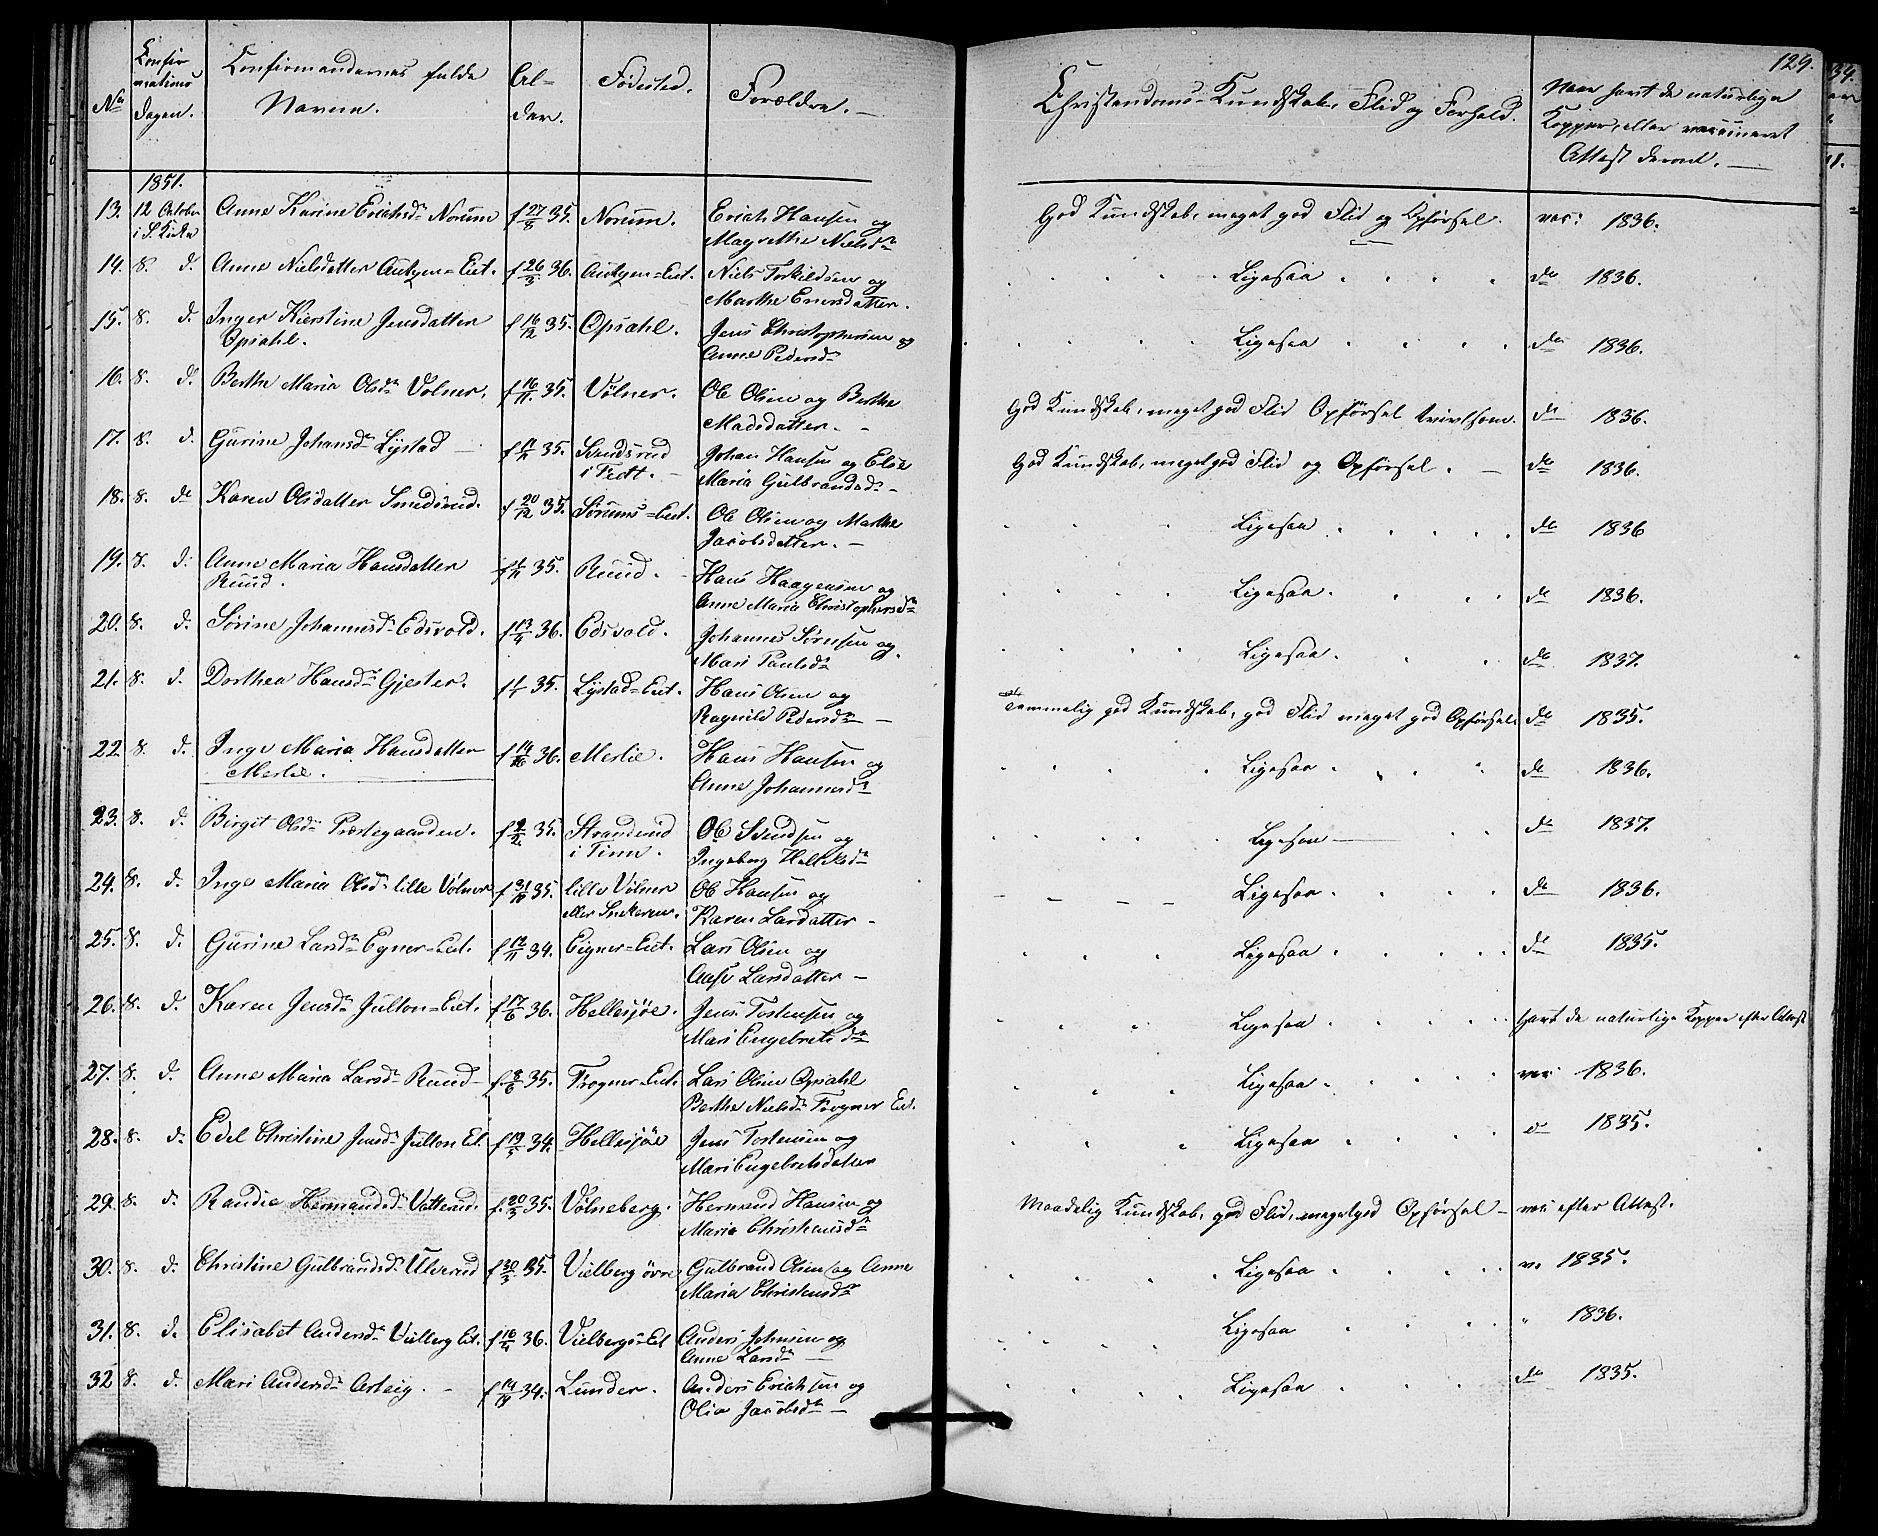 129.
No
Confirmations Dagen.
Confirmandernes fulde
Navne.
Al-
der.
Fødested.
Forældre. —
Christendoms-Kundskab, Flid og Forhold.
Naar havt de naturlige
Kopper, eller vaccineret
Attest derom. —
1851.
13. 12 October i S. Kirke Anne Karine Erichsdr Norum f 27/8 35. Norum. Erich Hansen og
Magrethe Nielsdr
God Kundskab, meget god Flid og Opførsel. vac: 1836.
14. 8. d. Anne Nielsdatter Autyen=Eiet. f 26/3 36. Autyen=Eiet. Niels Torkildsen og
Marthe Enersdatter.
Ligesaa do 1836.
15. 8. d. Inger Kierstine Jensdatter f 16/12 35. Opsahl. Jens Christophersen og
Opsahl. Anne Pedersdr
Ligesaa do 1836.
16. 8. d. Berthe Maria Olsdr Volner. f 16/11 35. Vølner. Ole Olsen og Berthe
Madsdatter. -
God Kundskab, meget god Flid Opførsel tvivlsom. do 1836.
17. 8. d. Gurine Johansdr Lystad f 35. Svendsrud Johan Hansen og Elise
i Fedt. — Maria Gulbrandsdr -
God Kundskab, meget god Flid og Opførsel. — do 1836.
18. 8. do Karen Olsdatter Smedsrud. f 20/12 35. Sørums=Eiet. Ole Olsen og Marthe
Jacobsdatter. —
Ligesaa do 1836
19. 8. d. Anne Maria Hansdatter f 1/11 35. Ruud. Hans Haagensen og
Ruud. Anne Maria Christophersdr
Ligesaa. do 1836.
20. 8. d. Sørine Johannesdr Edsvold. f 13/4 36. Edsvold. Johannes Sørensen og
Mari Paulsdr
Ligesaa. do 1837.
21. 8. d. Dorthea Hansdr Gjester. f 1/1 35. Lystad=Eiet. Hans Olsen og
Ragnild Pedersdr —
Temmelig god Kundskab, god Flid meget god Opførsel. do 1835.
22 8. d. Inge Maria Hansdatter f 36. Merlie. Hans Hansen og
Merlie. Anne Johannesdr
Ligesaa do 1836.
23. 8. d. Birgit Olsdr Præstegaarden. f 2/2 35. Stranderud Ole Svendsen og
i Tinn. Ingeborg
Ligesaa do 1837.
24. 8. d. Inge Maria Olsdr lille Vølner f 31/10 35. lille Vølner Ole Hansen og
eller Snekeren. Karen Larsdatter -
Ligesaa do 1836.
25. 8. d. Gurine Larsdr Egner=Eiet. f 12/11 34. Eigner=Eiet. Lars Olsen og
Aase Larsdatter —
Ligesaa do 1835.
26. 8. d. Karen Jensdr Julton=Eiet. f 17/6 36. Hellesjøe. Jens Tostensen og
Mari Engebretsdr
Ligesaa havt de naturlige Kopper efter Attest
27. 8. d. Anne Maria Larsdr Ruud f. 8/6 35. Frogner=Eiet. Lars Olsen Opsahl
Berthe Nielsdr Frogner Eie.
Ligesaa vac: 1836.
28. 8. d. Edel Christine Jensdr Julton Eie. f 34. Hellesjøe Jens Tostensen og
Mari Engebretsdatter
Ligesaa d 1835.
29. 8. d. Randie Hermandsdr Vatterud. f. 20/3 35. Vølneberg. Hermand Hansen og
Maria Christensdr
Maadelig Kundskab, god Flid, meget god Opførsel — vac efter Attest.
30. 8. d. Christine Gulbrandsdr Ulverud f 20/3 35. Vielberg øvre Gulbrand Olsen og Anne
Maria Christensdr
Ligesaa v. 1835.
31. 8. d. Elisabet Andersdr Vielberg Eiet. f 16/4 36. Vielbergs=Eiet Anders Johnsen og
Anne Larsdr —
Ligesaa „ 1836.
32 8. d. Mari Andersdr Asteig. - f 34. Lunder. Anders Erichsen og
Olia Jacobsdr —
Ligesaa do 1835.